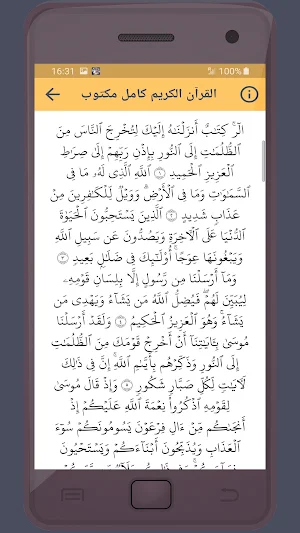 16:31 100%
القرآن الكريم كامل مكتوب
الٓرۚ كِتَٰبٌ أَنزَلْنَٰهُ إِلَيْكَ لِتُخْرِجَ ٱلنَّاسَ مِنَ
ٱلظُّلُمَٰتِ إِلَى ٱلنُّورِ بِإِذْنِ رَبِّهِمْ إِلَىٰ صِرَٰطِ
ٱلْعَزِيزِ ٱلْحَمِيدِ ١ ٱللَّهِ ٱلَّذِى لَهُۥ مَا فِى
ٱلسَّمَٰوَٰتِ وَمَا فِى ٱلْأَرْضِۗ وَوَيْلٌ لِّلْكَٰفِرِينَ مِنْ
عَذَابٍ شَدِيدٍ ٢ ٱلَّذِينَ يَسْتَحِبُّونَ ٱلْحَيَوٰةَ
ٱلدُّنْيَا عَلَى ٱلْءَاخِرَةِ وَيَصُدُّونَ عَن سَبِيلِ ٱللَّهِ
وَيَبْغُونَهَا عِوَجًاۚ أُو۟لَٰٓئِكَ فِى ضَلَٰلٍۭ بَعِيدٍ ٣
وَمَآ أَرْسَلْنَا مِن رَّسُولٍ إِلَّا بِلِسَانِ قَوْمِهِۦ
لِيُبَيِّنَ لَهُمْۖ فَيُضِلُّ ٱللَّهُ مَن يَشَآءُ وَيَهْدِى مَن
يَشَآءُۚ وَهُوَ ٱلْعَزِيزُ ٱلْحَكِيمُ ٤ وَلَقَدْ أَرْسَلْنَا
مُوسَىٰ بِـَٔايَٰتِنَآ أَنْ أَخْرِجْ قَوْمَكَ مِنَ ٱلظُّلُمَٰتِ
إِلَى ٱلنُّورِ وَذَكِّرْهُم بِأَيَّىٰمِ ٱللَّهِۚ إِنَّ فِى ذَٰلِكَ
لَءَايَٰتٍ لِّكُلِّ صَبَّارٍ شَكُورٍ ٥ وَإِذْ قَالَ مُوسَىٰ
لِقَوْمِهِ ٱذْكُرُوا۟ نِعْمَةَ ٱللَّهِ عَلَيْكُمْ إِذْ
أَنجَىٰكُم مِّنْ ءَالِ فِرْعَوْنَ يَسُومُونَكُمْ سُوٓءَ
ٱلْعَذَابِ وَيُذَبِّحُونَ أَبْنَآءَكُمْ وَيَسْتَحْيُونَ